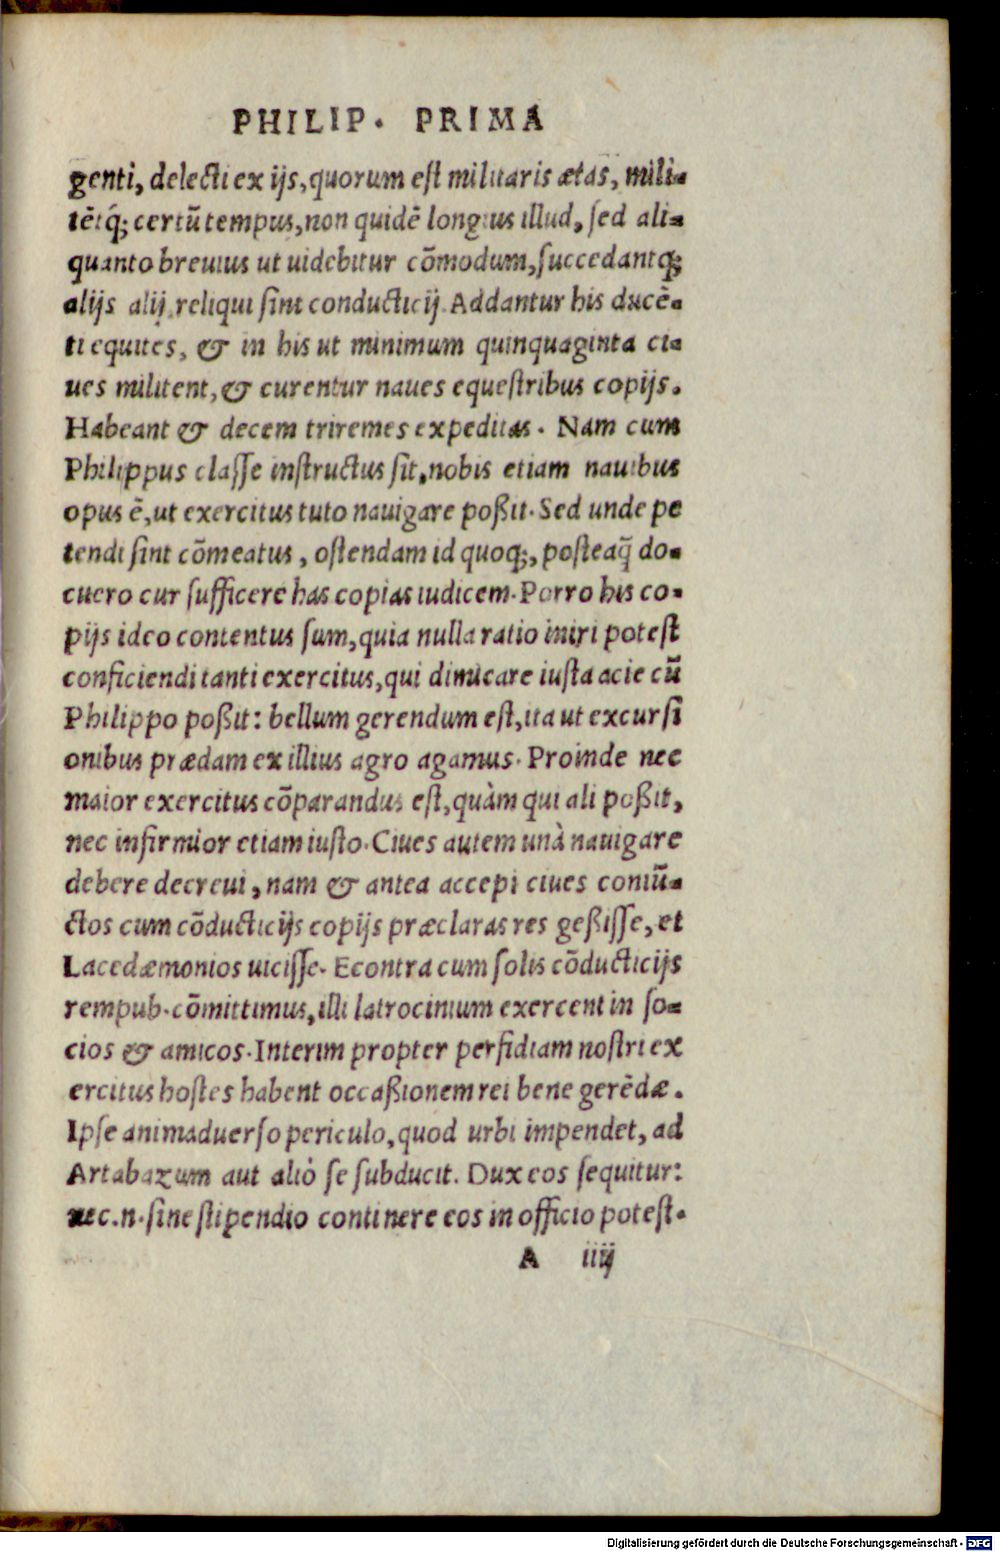 PHILIP. PRIMA
genti, delecti ex ijs, quorum est militaris ætas, mili-
tẽtq́; certũ tempus, non quidẽ longius illud, sed ali-
quanto breuius ut uidebitur cõmodum, succedantq́;
alijs alij, reliqui sint conducticij. Addantur his ducẽ-
ti equites, & in his ut minimum quinquaginta ci-
ues militent, & curentur naues equestribus copijs.
Habeant & decem triremes expeditas. Nam cum
Philippus classe instructus sit, nobis etiam nauibus
opus ẽ, ut exercitus tuto nauigare poßit. Sed unde pe
tendi sint cõmeatus, ostendam id quoq;, posteaq̃ do-
cuero cur sufficere has copias iudicem. Porro his co-
pijs ideo contentus sum, quia nulla ratio iniri potest
conficiendi tanti exercitus, qui dimicare iusta acie cũ
Philippo poßit: bellum gerendum est, ita ut excursi
onibus prædam ex illius agro agamus. Proinde nec
maior exercitus cõparandus est, quàm qui ali poßit,
nec infirmior etiam iusto. Ciues autem unà nauigare
debere decreui, nam & antea accepi ciues coniũ-
ctos cum cõducticijs copijs præclaras res geßisse, et
Lacedæmonios uicisse. Econtra cum solis cõducticijs
rempub. cõmittimus, illi latrocinium exercent in so-
cios & amicos. Interim propter perfidiam nostri ex
ercitus hostes habent occaßionem rei bene gerẽdæ.
Ipse animaduerso periculo, quod urbi impendet, ad
Artabazum aut aliò se subducit. Dux eos sequitur:
nec.n. sine stipendio continere eos in officio potest.
A iiij
Digitalisierung gefördert durch die Deutsche Forschungsgemeinschaft - DFG